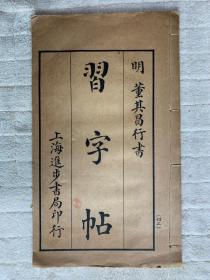 明 董其昌行書
習字帖
上海進步書局印行